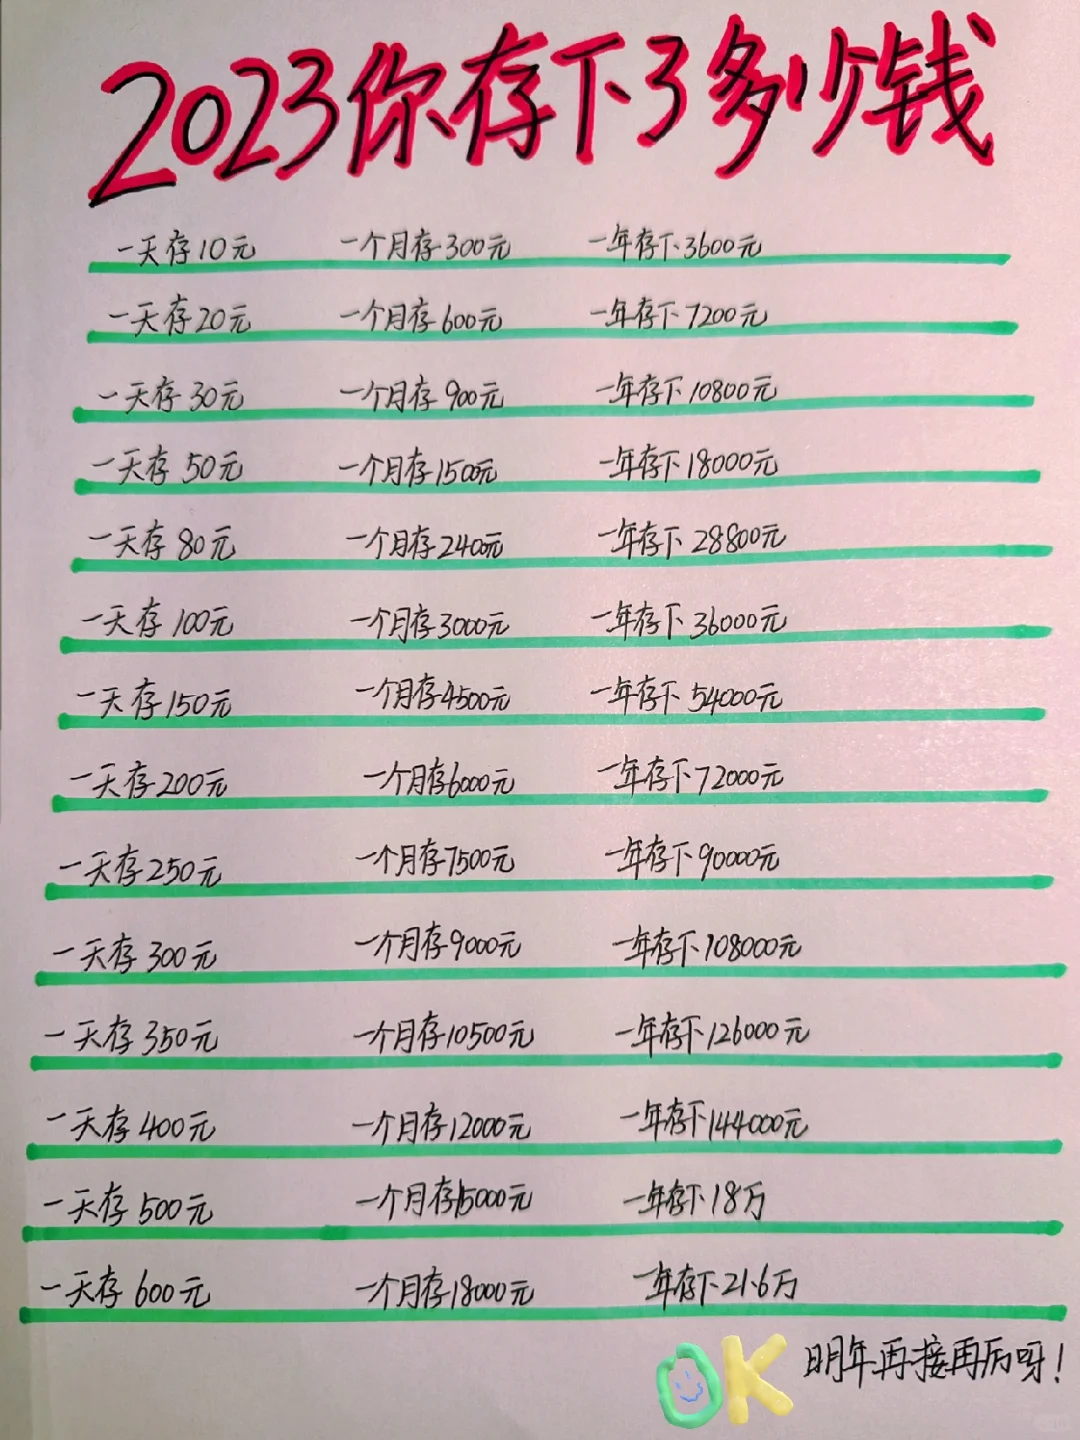 2023你存下了多少钱
一天存10元 一个月存300元 一年存下3600元
一天存20元 一个月存600元 一年存下7200元
一天存30元 一个月存900元 一年存下10800元
一天存50元 一个月存1500元 一年存下18000元
一天存80元 一个月存2400元 一年存下28800元
一天存100元 一个月存3000元 一年存下36000元
一天存150元 一个月存4500元 一年存下54000元
一天存200元 一个月存6000元 一年存下72000元
一天存250元 一个月存7500元 一年存下90000元
一天存300元 一个月存9000元 一年存下108000元
一天存350元 一个月存10500元 一年存下126000元
一天存400元 一个月存12000元 一年存下144000元
一天存500元 一个月存15000元 一年存下18万
一天存600元 一个月存18000元 一年存下21.6万
OK 明年再接再厉呀！